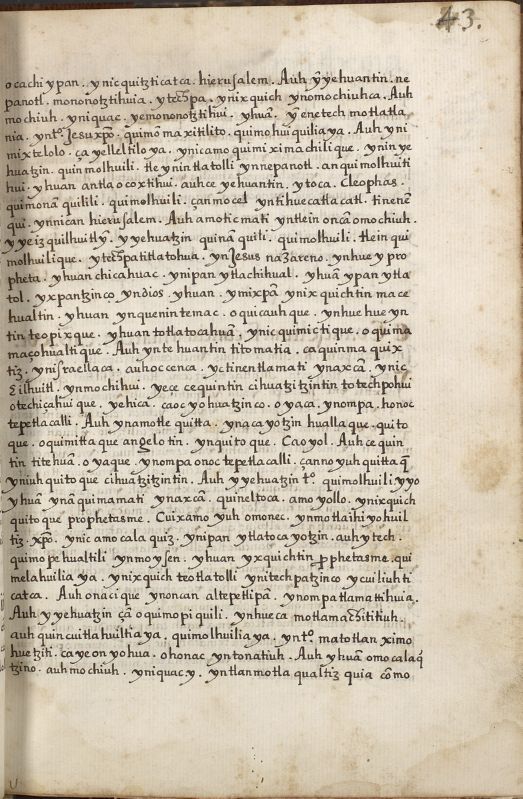 43.
ocachi ypan . ynicquitzticatca . hierusalem . Auh yȳehuantin . ne
panotl . mononotztihuia . ytechpa . ynixquich ynomochiuhca . Auh
mochiuh . yniquac . yemononotztihui . yhuā . ȳenetech motlatla,
nia . ynto . Jesuxpo . quimōmaxitilito . quimohuiquiliya . Auh yni
mixtelolo . ça yelleltiloya . ynicamo quimiximachilique . yninye
huatzin . quinmolhuili . tle ynintlatolli ynnepanotl . anquimolhuiti
hui . yhuan antlaocoxtihui . auhce yehuantin . ytoca . Cleophas .
quimonanquilili . quimolhuili . çanmocel yntihuecatlacatl . tinenen
qui . ynnican hierusalem . Auh amoticmati yntlein oncā omochiuh .
yyeiz quilhuitlȳ . yyehuatzin quinā quiti . quimolhuili . tlein qui
molhuilique . ytechpatitlatohua . ynJesus nazareno . ynhuey pro
pheta . yhuan chicahuac . ynipan ytlachihual . yhuā ypan ytla
tol . yxpantzinco yndios . yhuan . ymixpā ynixquichtin mace
hualtin . yhuan ynquenintemac . oquicauhque . ynhuehueyn
tin teopixque . yhuan totlatocahuā . ynicquimictique . oquima
maçohualtique . Auh yntehuantin titomatia . caquinmaquix
tiz . ynisraellaca . auhoccenca . yctinentlamati ynaxcā . ynic
Eilhuitl . ynmochihui . yece cequintin cihuatzitzintin totechpohui
otechiçahuique . yehica . caoc yohuatzinco . oyaca . ynompa . honoc
tepetlacalli . Auh ynamotle quitta . ynacayotzin huallaque . quito
que . oquimittaque angelotin . ynquitoque . Caoyol . Auh cequin
tin titehuā . oyaque . ynompa onoc tepetlacalli . çannoyuh quittaq̄
yniuh quitoque cihuātzitzintin . Auh yyehuatzin to . quimolhuili yyo
yhuā . ynāquimamati ynaxcā . quineltoca . amo yollo . ynixquich
quitoque prophetasme . Cuixamo yuh omonec . ynmotlaihiyohuil
tiz . xpo . ynicamocalaquiz . ynipan ytlatocayotzin . auhytech .
quimopehualtili ynmoysen . yhuan yxquichtin prophetasme . qui
melahuilia ya . ynixquich teotlatolli ynitechpatzinco ycuiliuhti
catca . Auh onacique ynoncan altepetlipā . ynompatlamatihuia .
Auh yyehuatzin çā oquimopiquili . ynhueca motlamachititiuh .
auh quincuitlahuiltiaya . quimolhuiliya . ynto . matotlan ximo
huetziti . cayeonyohua . ohonac yntonatiuh . Auh yhuā omocalaq̄
tzino . auhmochiuh . yniquacy . yntlanmotla qualtiz quia cōmo